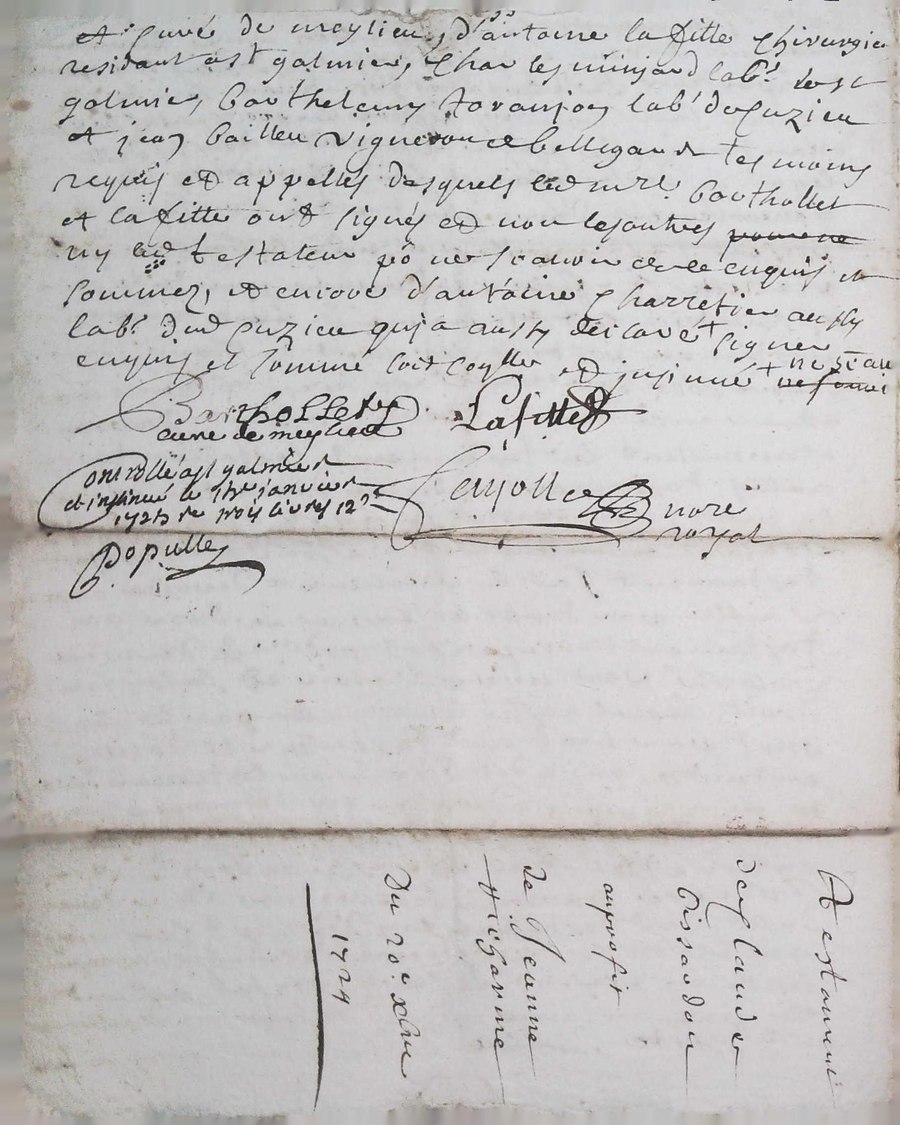 et curé de meylieu, Sr antoine lafitte chirurgien
residant a st galmier, charles minjard labr. de st
galmier, barthelemy toranjon labr de cuzieu
et jean bailleu vigneron de bellegarde tesmoins
requis et appellés desquels led mre. Barthollet
et lafitte ont signés et non les autres
ny led testateur po ne scavoir de ce enquis et
sommez, et encore d'antoine charretier aussy
labr. dud cuzieu qui a aussy declaré + signer
enquis et sommé soit coyllé et insinué + ne scav
Barthollet
curé de meylieu
Lafitte
Controllé a st galmier
et insinué le janvier
1725 re trois livres 12 s
nore
royal
Populle
Testament
de claude
Pissardon
au profit
de Jeanne
Du 20e xbre
1724